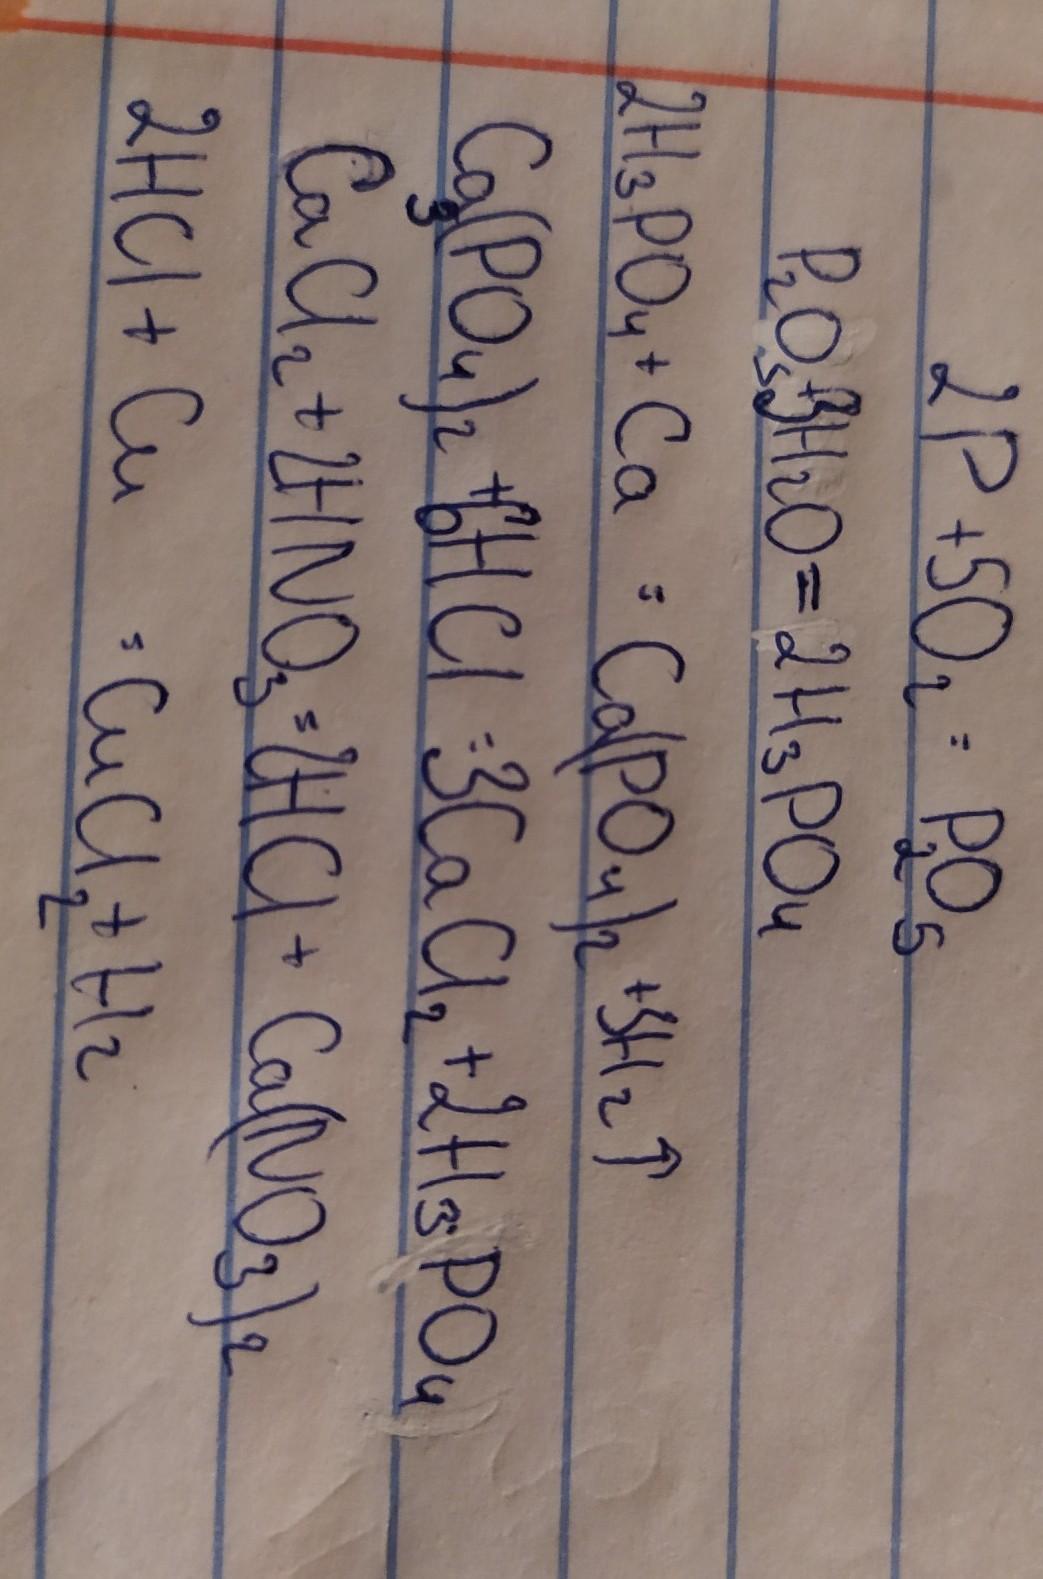 2P + 5O₂ = P₂O₅
P₂O₅ + 3H₂O = 2H₃PO₄
2H₃PO₄ + Ca = Ca(PO₄)₂ + 3H₂↑
Ca₃(PO₄)₂ + 6HCl = 3CaCl₂ + 2H₃PO₄
CaCl₂ + 2HNO₃ = 2HCl + Ca(NO₃)₂
2HCl + Cu = CuCl₂ + H₂